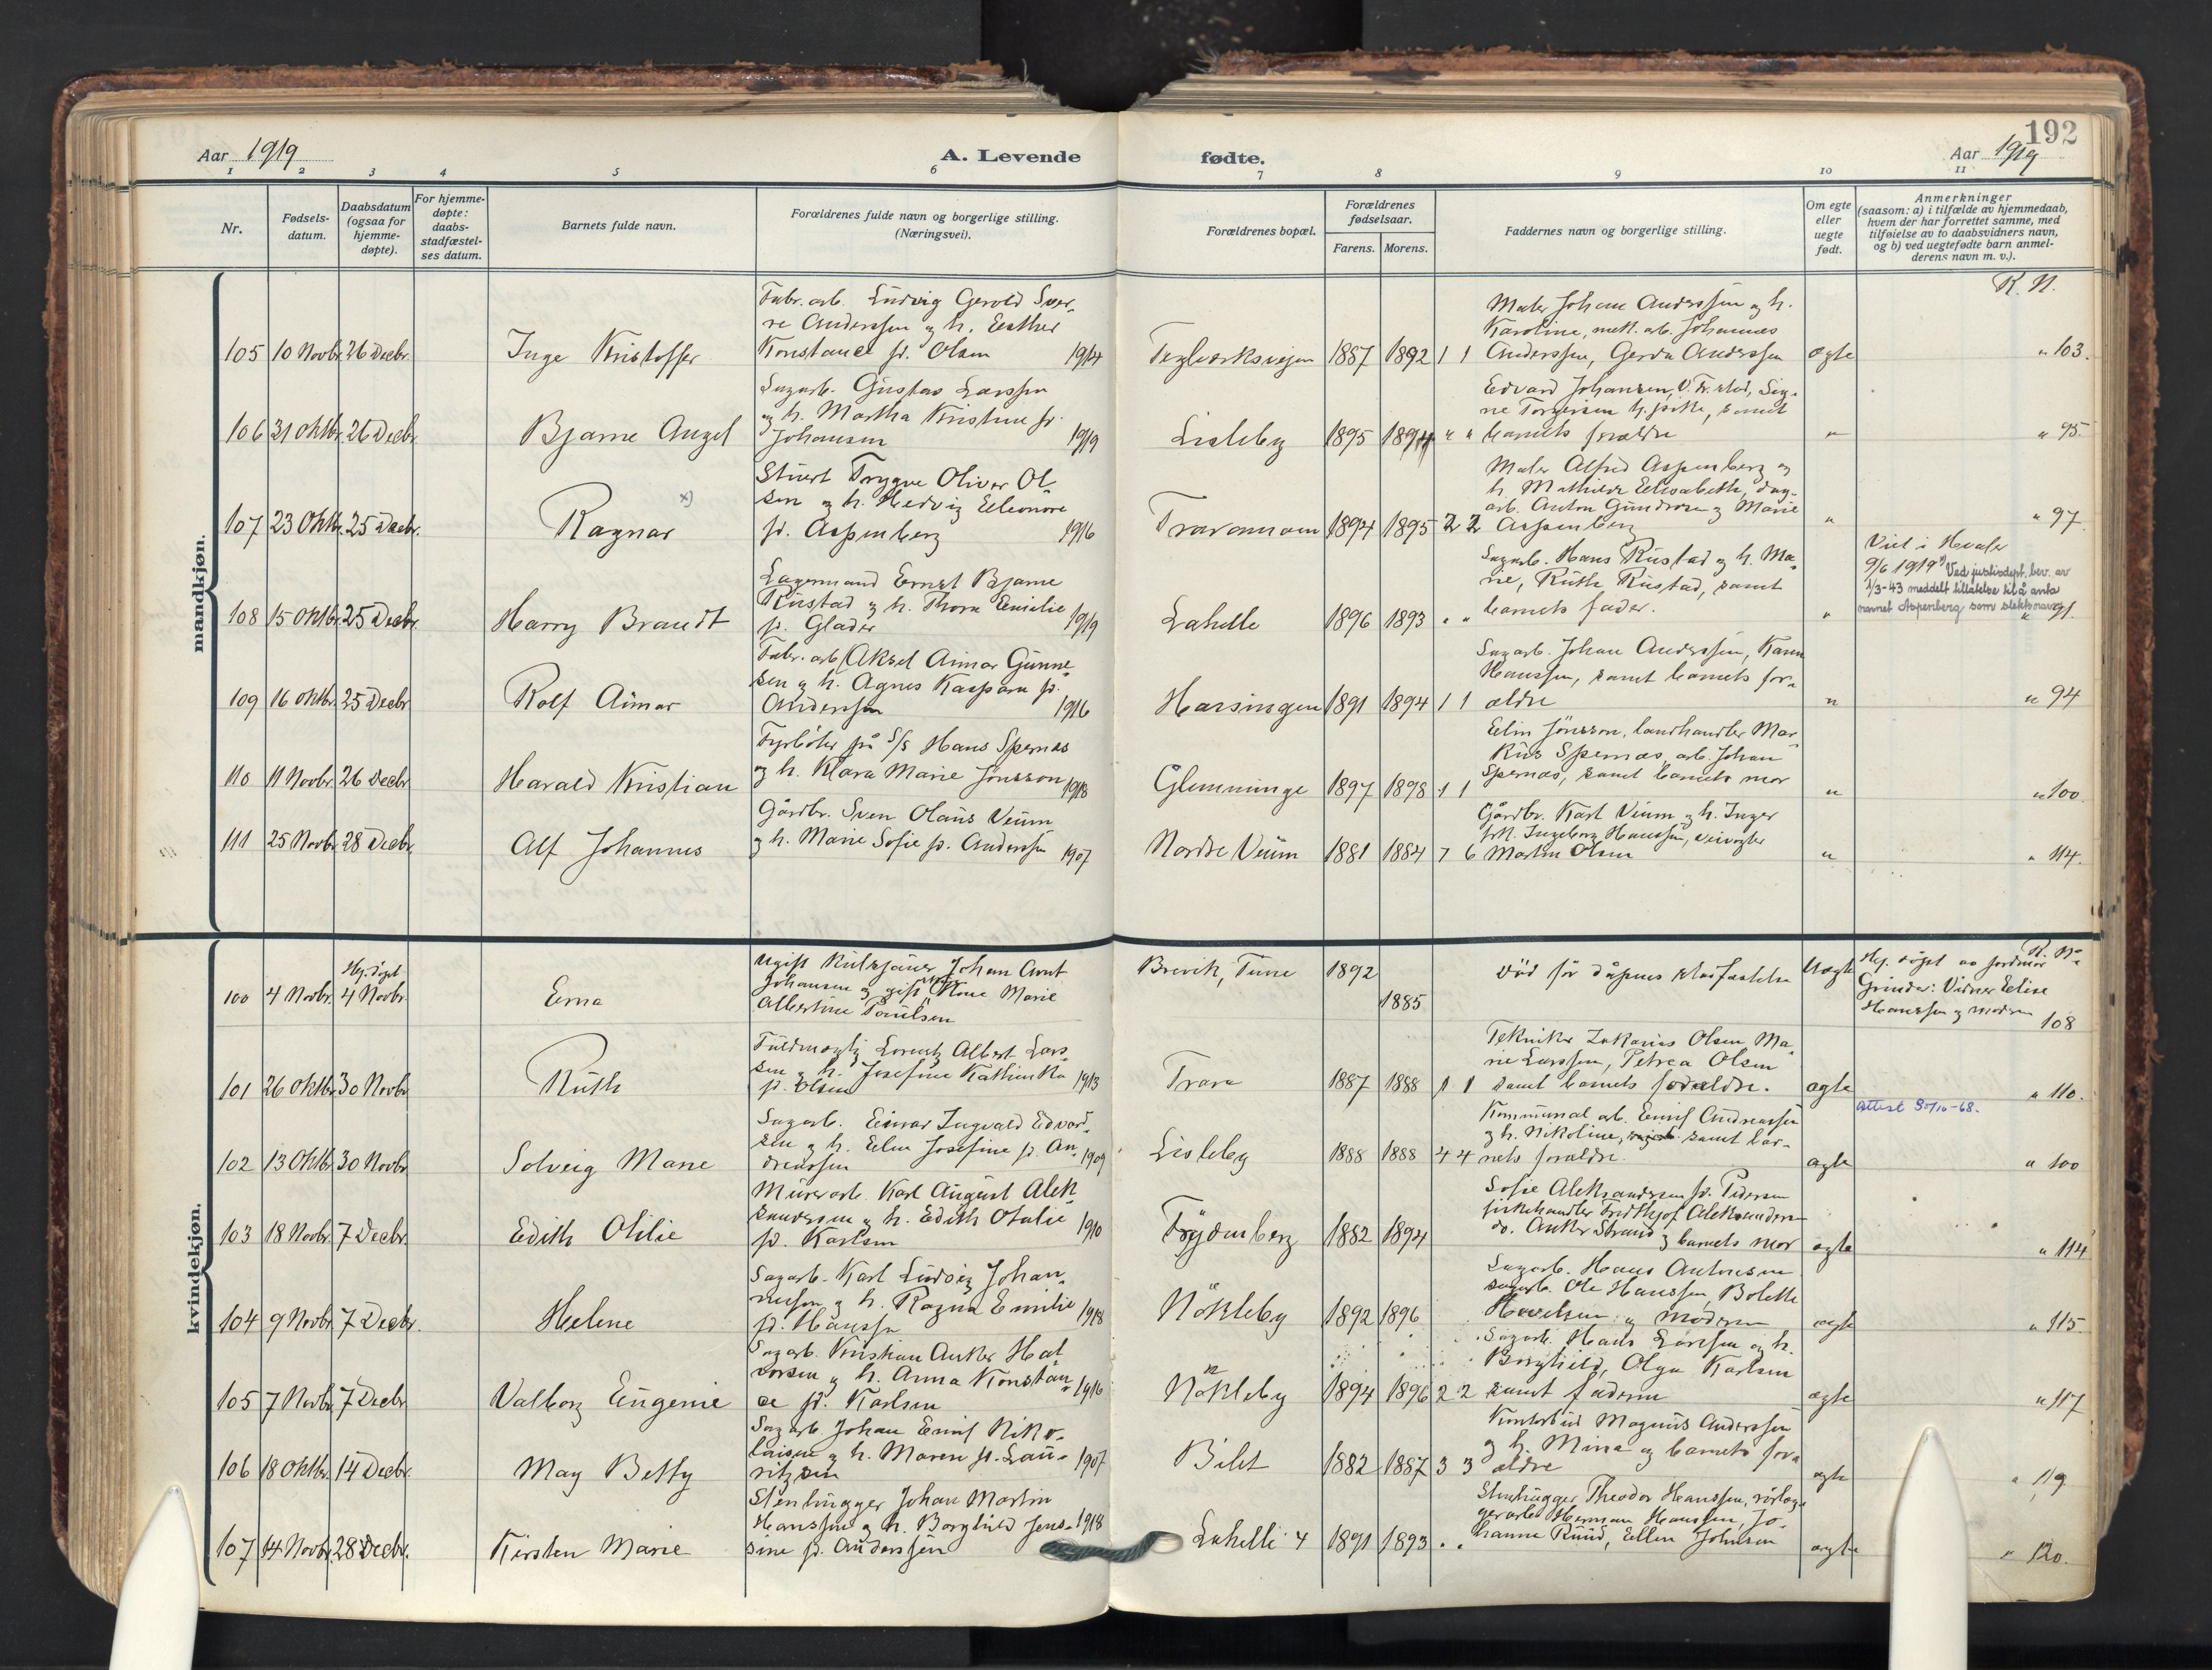 192
Aar 1919
A. Levende
fødte.
Aar 1919
1 2 3 4 5 6 7 8 9 10 11
Nr.
Fødsels-
datum.
Daabsdatum
(ogsaa for
hjemme-
døpte).
For hjemme-
døpte:
daabs-
stadfæstel-
ses datum.
Barnets fulde navn.
Forældrenes fulde navn og borgerlige stilling.
(Næringsvei).
Forældrenes bopæl.
Forældrenes
fødselsaar.
Farens. Morens.
Faddernes navn og borgerlige stilling.
Om egte
eller
uegte
født.
Anmerkninger
(saasom: a) i tilfælde av hjemmedaab,
hvem der har forrettet samme, med
tilføielse av to daabsvidners navn,
og b) ved uegtefødte barn anmel-
derens navn m. v.).
mandkjøn.
R. N.
105 10 Novbr. 26 Decbr. Inge Kristoffer
Fabr. arb. Ludvig Gerold Sver-
re Anderssen og h. Esther
Konstance f. Olsen 1914
Teglverksveien 1887 1892 1 1
Maler Johan Anderssen og h.
Karoline, mell. arb. Johannes
Anderssen, Gerda Anderssen
ægte
" 103.
106 31 Oktbr. 26 Decbr. Bjarne Angel
Sagarb. Gustav Larssen
og h. Martha Kristine f.
Johansen 1919
Lisleby 1895 1894 " "
Edvard Johansen, Sig-
ne Torgersen h. pike, samt
barnets forældre
"
" 95.
107 23 Oktbr. 25 Decbr. Ragnar x)
Stuert Trygve Oliver Ol-
sen og h. Hedvig Eleonore
f. Aspenberg 1916
Traramoen 1894 1895 2 2
Maler Alfred Aspenberg og
h. Mathilde Elisabeth, dag-
arb. Anton Gundersen og Marie
Aspenberg
"
" 97.
108 15 Oktbr. 25 Decbr. Harry Brandt
Lagermand Ernst Bjarne
Rustad og h. Thora Emilie
f. Glader 1919
Lahelle 1896 1893 " "
Sagarb. Hans Rustad og h. Ma-
rie, Ruth Rustad, samt
barnets fader.
"
Viet i Hvaler
9/6 1919 x) Ved justisdept. bev. av
1/3-43 meddelt tillatelse til å anta
navnet Aspenberg som slektsnavn.
" 91.
109 16 Oktbr. 25 Decbr. Rolf Aimar
Fabr. arb. Aksel Aimar Gunne-
sen og h. Agnes Kaspara f.
Anderssen 1916
Hassingen 1891 1894 1 1
Sagarb. Johan Anderssen, Karen
Hanssen, samt barnets for-
ældre
"
" 94
110 11 Novbr. 26 Decbr. Harald Kristian
Fyrböter på S/S Hans Spernes
og h. Klara Marie Jonsson 1918
Glemminge 1897 1898 1 1
Elin Jönsson, landhandler Mar-
kus Spernes, arb. Johan
Spernes, samt barnets mor
"
" 100.
111 25 Novbr. 28 Decbr. Alf Johannes
Gårdbr. Sven Olaus Veum
og h. Marie Sofie f. Anderssen 1907
Nordre Veum 1881 1884 7 6
Gårdbr. Karl Veum og h. Inger
frk. Ingeborg Hanssen, veivogter
Martin Olsen
"
" 114.
kvindekjøn.
R. N.
100 4 Novbr. Hj. døpt 4 Novbr. Erna
Ugift Johan Arnt
Johansen og gift Kone Marie
Albertine Poulsen
Brevik, Tune 1892 1885
död før dåpens stadfæstelse
Uægte
Hj. døpt av jordmor
Grinder: Vidner Elise
Hanssen og moderen
108
101 26 Oktbr. 30 Novbr. Ruth
Fuldmægtig Lorentz Albert Lars-
sen og h. Josefine Kathinka
f. Olsen 1913
Trara 1887 1888 1 1
Tekniker Zakarias Olsen, Ma-
rie Larssen, Petrea Olsen
samt barnets forældre.
ægte
" 110.
102 13 Oktbr. 30 Novbr. Solveig Marie
Sagarb. Einar Ingvald Edvard-
sen og h. Elen Josefine f. An-
dreassen 1909
Lisleby 1888 1888 4 4
Kommunal arb. Emil Andreassen
og h. Nikoline, samt bar-
nets forældre.
ægte
Attest 30/10-68.
" 100
103 18 Novbr. 7 Decbr. Edith Otilie
Murerarb. Karl August Alek-
sandersen og h. Edith Otalie
f. Karlsen 1910
Frydenberg 1882 1894
Sofie Aleksandersen f. Pedersen
fiskehandler Fridthjof Aleksandersen
do. Anker Strand og barnets mor
ægte
" 114
104 9 Novbr. 7 Decbr. Helene
Sagarb. Karl Ludvig Johan-
nessen og h. Ragna Emilie
f. Hanssen 1918
Nökleby 1892 1896
Sagarb. Hans Antonsen
sagarb. Ole Hanssen, Bolette
og moderen
ægte
" 115.
105 7 Novbr. 7 Decbr. Valborg Eugenie
Sagarb. Kristian Anker Hal-
vorsen og h. Anna Konstan-
ce f. Karlsen 1916
Nökleby 1894 1896 2 2
Sagarb. Hans Larssen og h.
Borghild, Olga Karlsen
samt faderen
ægte
" 117
106 18 Oktbr. 14 Decbr. May Betty
Sagarb. Johan Emil Niko-
laisen og h. Maren f. Lau-
ritzsen 1907
Bilet 1882 1887 3 3
Kontorbud Magnus Anderssen
og h. Mina og barnets for-
ældre
ægte
" 119.
107 14 Novbr. 28 Decbr. Kirsten Marie
Stenhugger Johan Martin
Hanssen og h. Borghild Jens-
sine f. Anderssen 1918
Lahelle 4 1891 1893 " "
Stenhugger Theodor Hanssen, rörlæg-
gerarb. Herman Hanssen, Jo-
hanne Ruud, Ellen Johnsen
ægte
" 120.